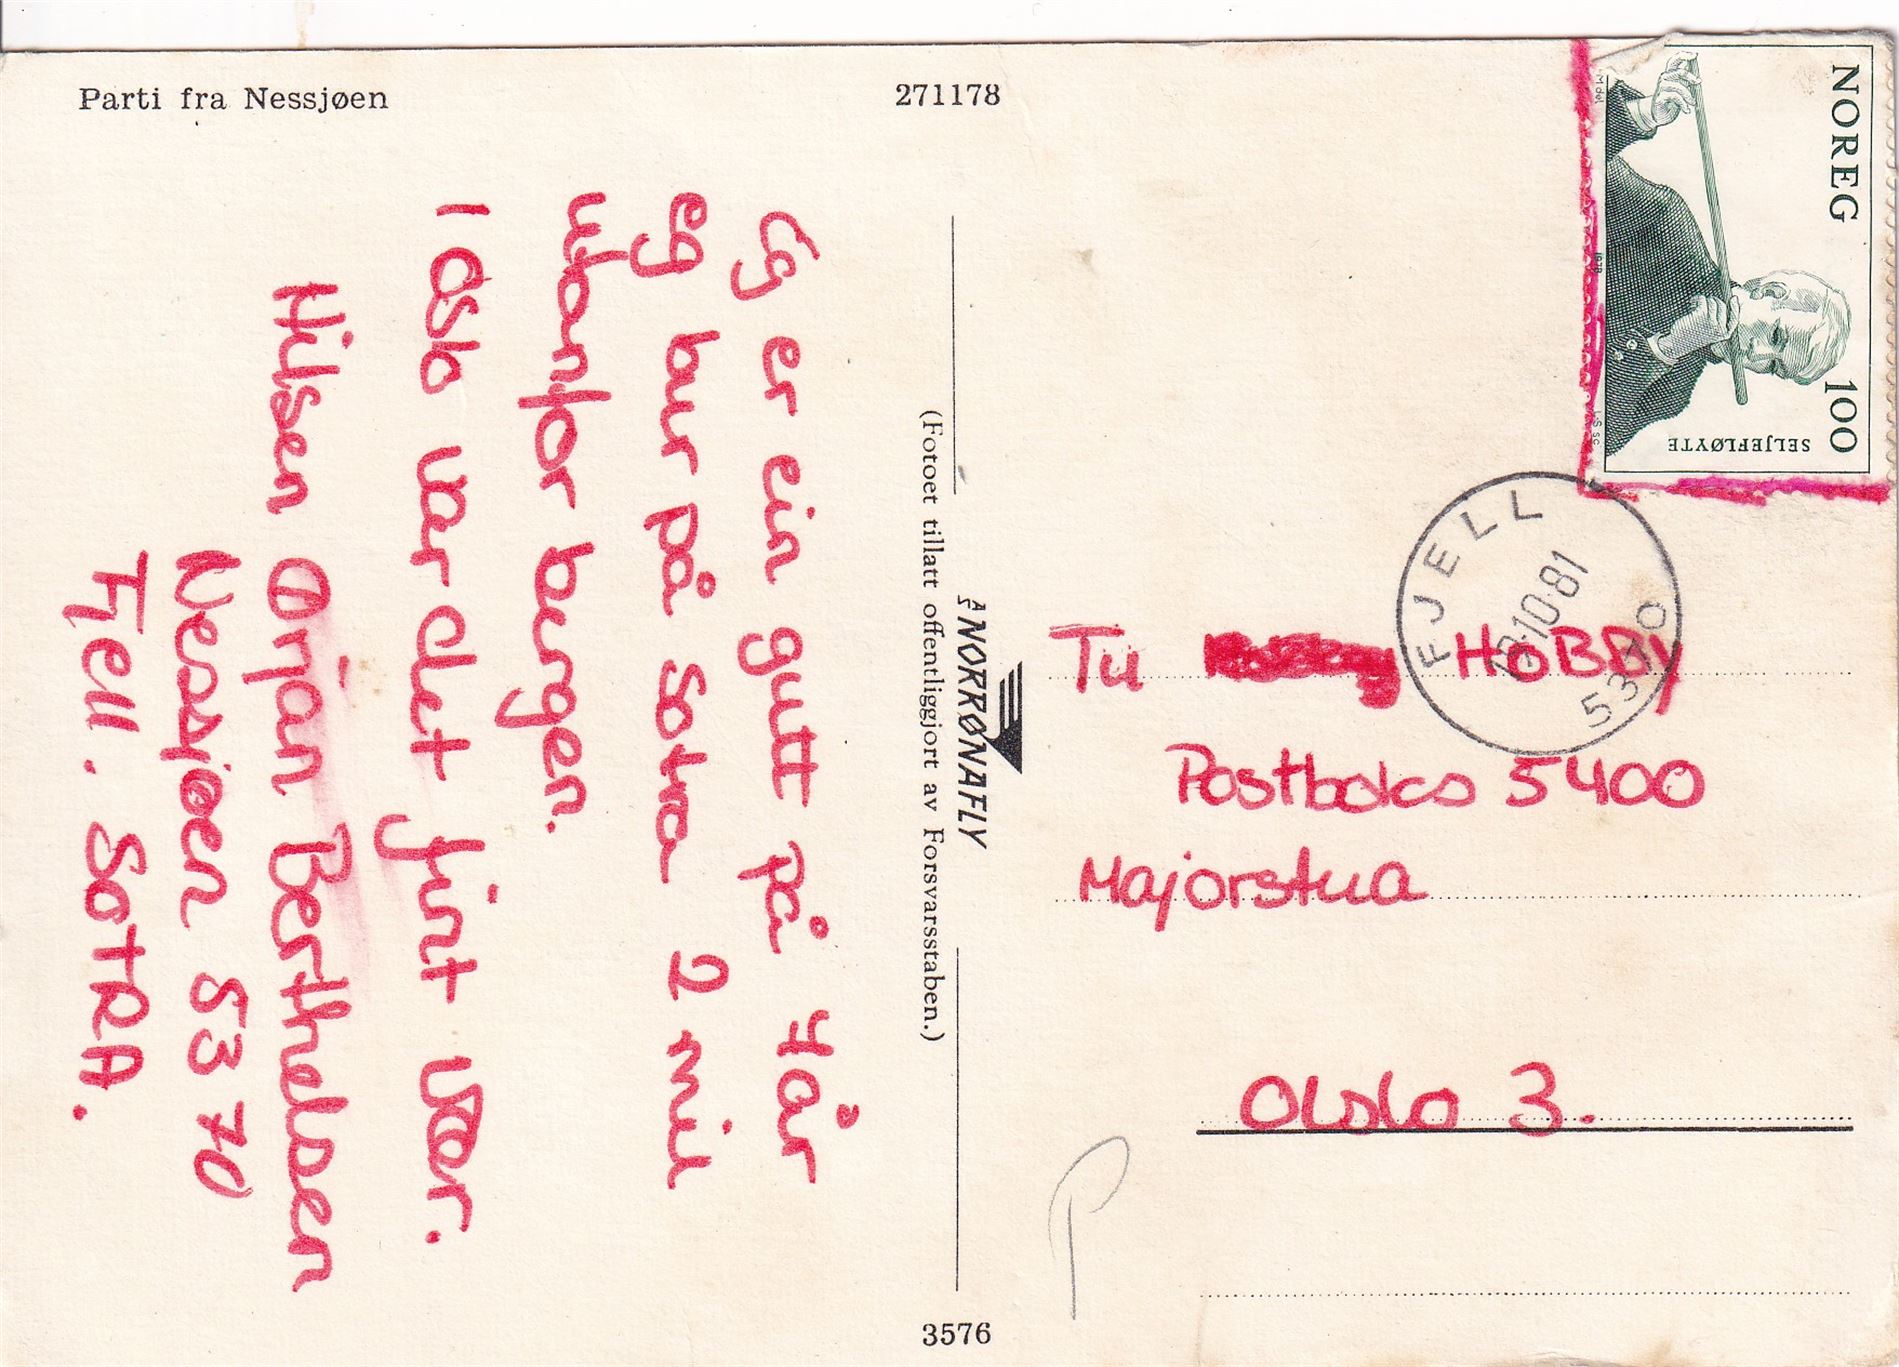 Parti fra Nessjøen
271178
Eg er ein gutt på 4 år
eg bur på Sotra 2 mil
utanfor bergen.
I oslo var det fint vær.
Hilsen Ørjan Berthelsen
Nessjøen 5370
Fjell. SOTRA.
(Fotoet tillatt offentliggjort av Forsvarsstaben.)
A/S NORRØNAFLY
3576
NOREG
100
SELJEFLØYTE
1978
FJELL
10-81
5370
Til HOBBY
Postboks 5400
Majorstua
Oslo 3.
P